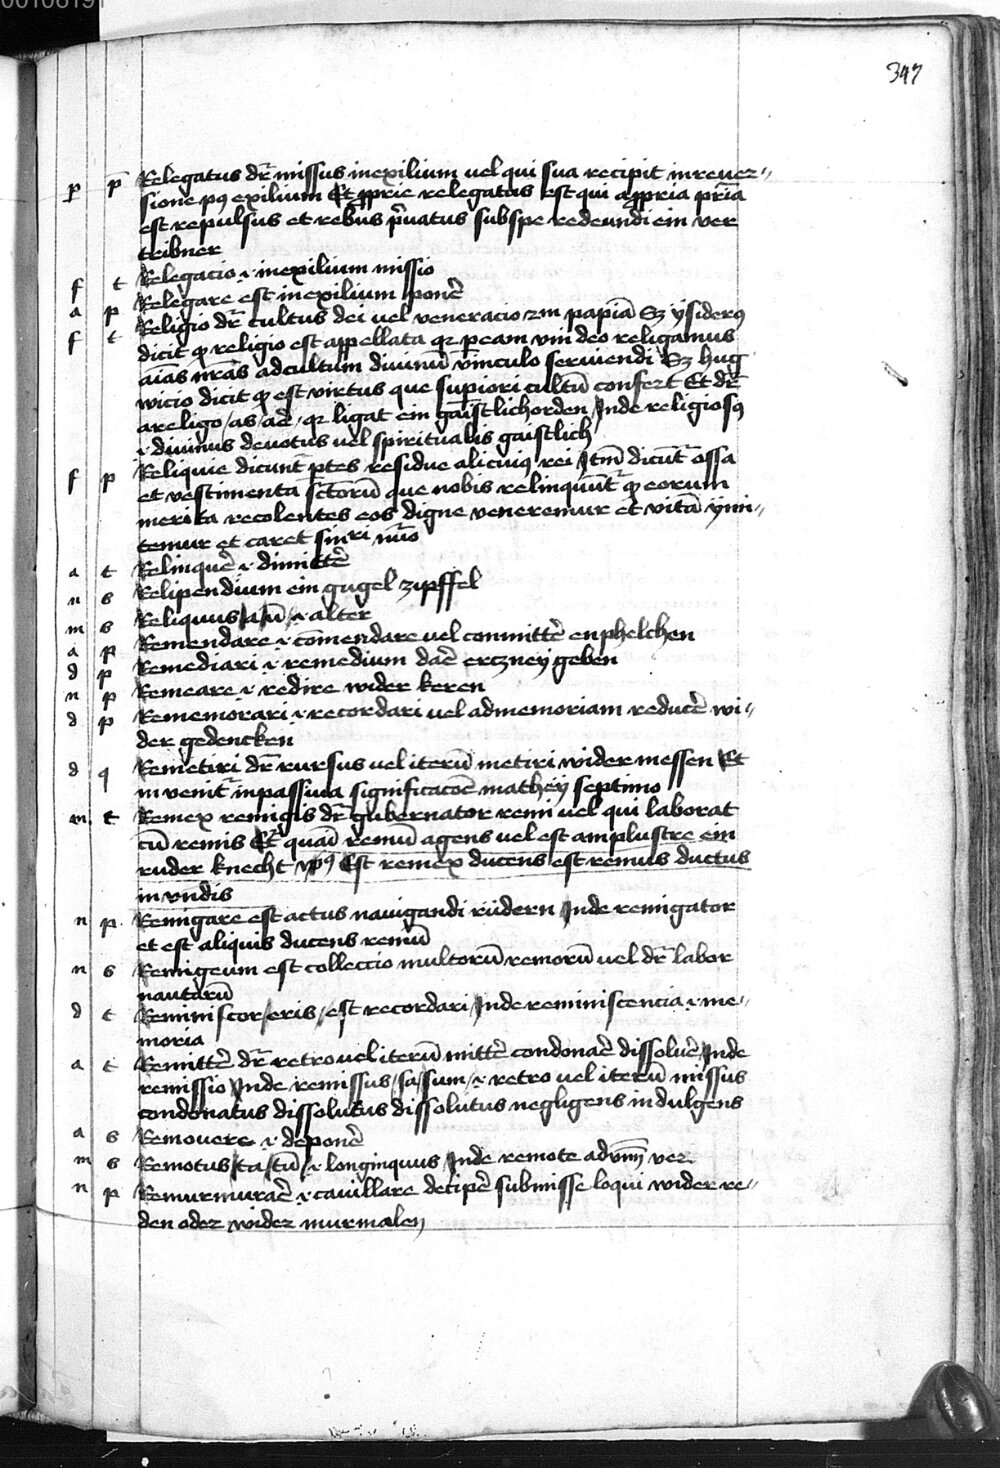 347
p p Relegatus dr̄ missus inexilium vel qui sua recipit inrever-
sione pꝰ exilium Et ꝓprie relegatus est qui aꝓpria pr̄ia
est repulsus et rebus p̄uatus subspe redeundi ein ver
tribner
f t Relegacio ·i· inexilium missio
a p Relegare est inexilium ponē
f t Religio dr̄ cultus dei vel veneracio 2m papiā Sz ysiderꝰ
dicit ꝙ religio est appellata qz peam vni deo religamus
aīas nr̄as adcultum diuinū vinculo seruiendi Sz hug
wicio dicit ꝙ est virtus que supiori cultū confert Et dr̄
areligo /as/ aē/ qz ligat ein gaistlichorden Inde religiosꝰ
·i· diuinus deuotus vel spiritualis gaistlich
f p Reliquie dicunt̄ ptes residue alicuiꝰ rei Itm̄ dicūt̄ ossa
et vestimenta sc̄torū que nobis relinquūt̄ ꝙ eorum
merita recolentes eos digne veneremur et vitā ymi-
temur et caret sin̄ri nūo
a t Relinquē ·i· dimittē
n s Relipendium ein gugel zipffel
m s Reliquus/a/ū/ ·i· alter
a p Remendare ·i· cōmendare vel committē enphelchen
d p Remediari ·i· remedium daē ertzney geben
n p Remeare ·i· redire wider keren
d p Rememorari ·i· recordari vel admemoriam reducē wi-
der gedencken
d q Remetiri dr̄ rursus vel iterū metiri wider messen Et
invenit̄ inpassiua significacōē mathey septimo
m t Remex remigis dr̄ gubernator remi vel qui laborat
cū remis Et̄ quāi remū agens vel est amplustre ein
ruder knecht vꝰ Est remex ducens est remus ductus
in vndis
n p Remigare est actus nauigandi rüdern Inde remigator
et est aliquis ducens remū
n s Remigeum est colleccio multorū remorū vel dr̄ labor
nautarū
d t Reminiscor/eris/ est recordari Inde reminiscencia ·i· me-
moria
a t Remittē dr̄ retro vel iterū mittē condonaē dissoluē Inde
remissio Inde remissus/sa/sum/ ·i· retro vel iterū missus
condonatus dissolutus dissolutus negligens indulgens
a s Remouere ·i· deponē
m s Remotus/ta/tū/ ·i· longinquus Inde remote adv̄m ver
n p Remurmuraē ·i· cauillare decipē submisse loqui wider re-
den oder wider murmalen